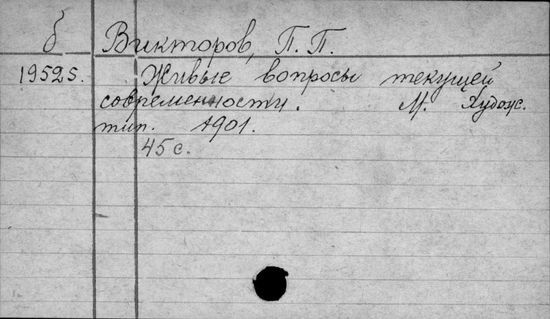 б Викторов, П. П.
1952s. Живые вопросы текущей
современности. М. Худож.
тип. 1901.
45 с.